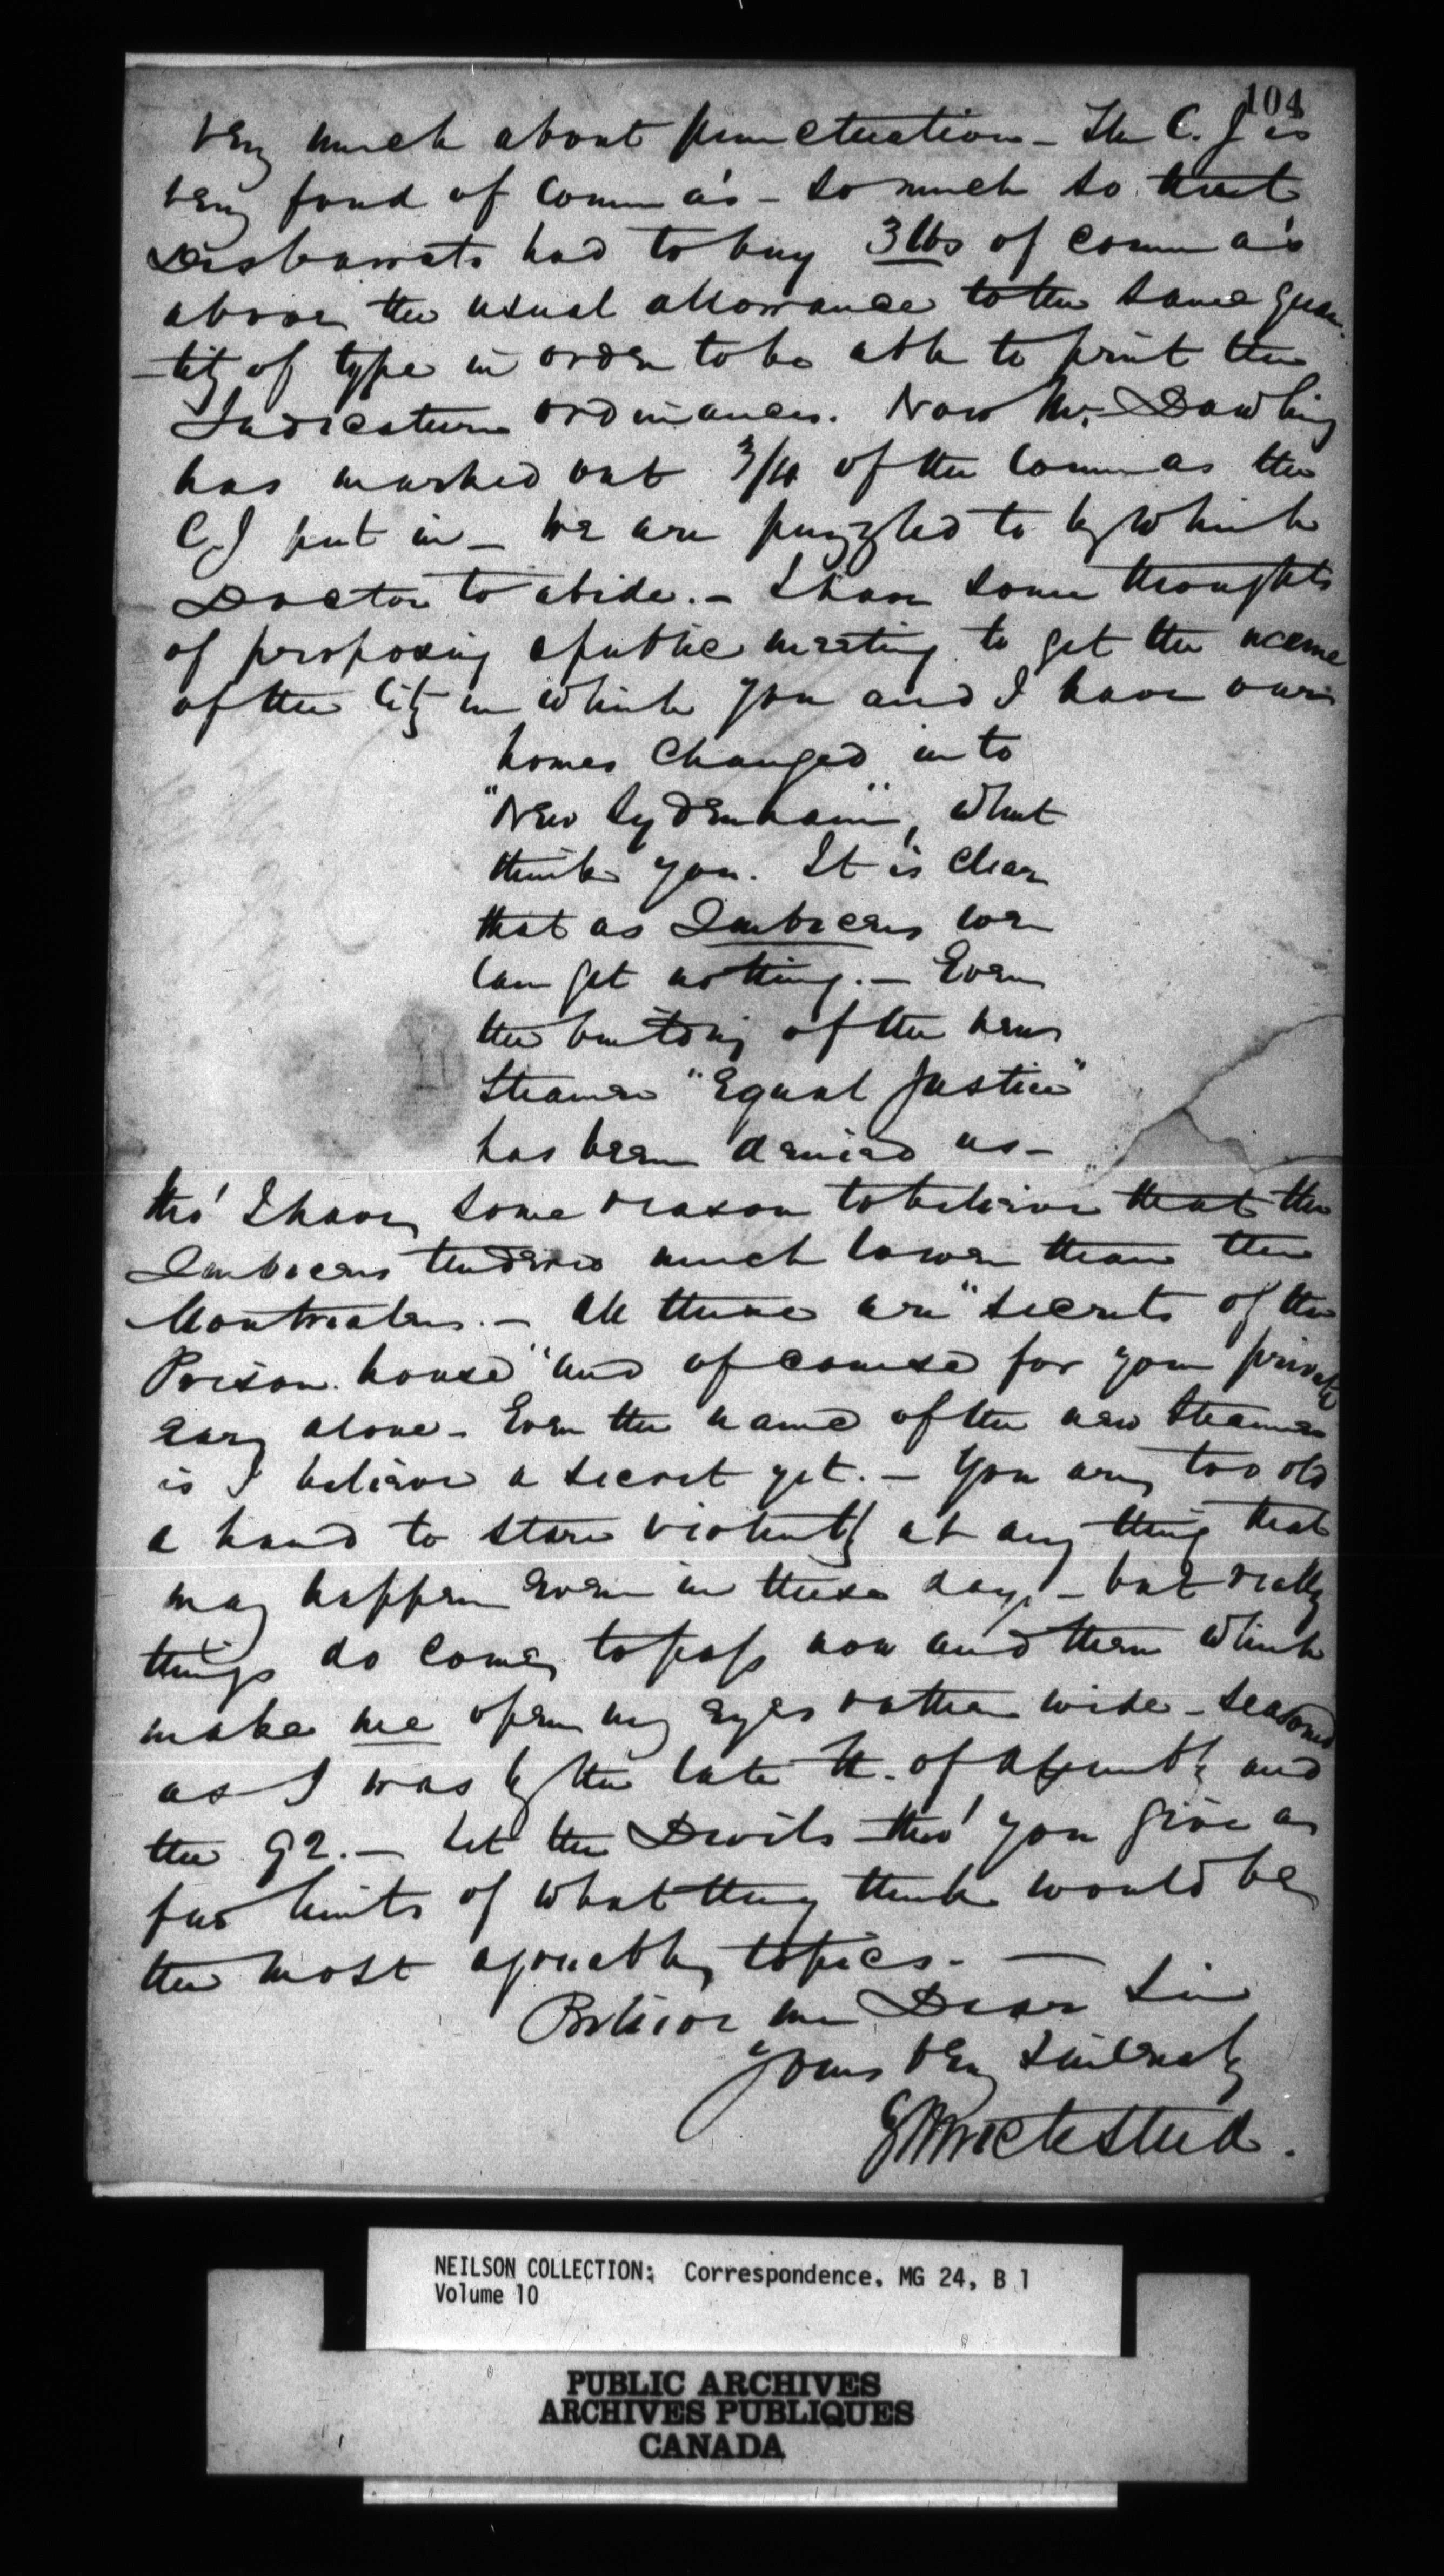 104
very much about punctuation - The C. J is
very fond of Comma's - so much so that
Desbarats had to buy 3 lbs of comma's
above the usual allowance to the same quan-
-tity of type in order to be able to print the
Judicature Ordinances. Now Mr. Dowling
has marked out 3/4 of the Commas the
C. J put in - We are puzzled to by which
Doctor to abide. - I have some thoughts
of proposing a public meeting to get the name
of the City in which you and I have our
homes changed into
"New Sydenham", what
think you. It is clear
that as Quebecers we
can get nothing. - Even
the building of the new
Steamer "Equal Justice"
has been denied us -
tho' I have some reason to believe that the
Quebecers tendered much lower than the
Montrealers. - All these are "secrets of the
Prison house" and of course for your private
ear alone - Even the name of the new Steamer
is I believe a secret yet. - You are too old
a hand to stare violently at any thing that
may happen even in these days - but really
things do come to pass now and then which
make me open my eyes rather wide - seasoned
as I was by the late H. of Assembly and
the 92. - Let the Devils tho' you give a
few hints of what they think would be
the most agreeable topics. -
Believe me Dear Sir
Yours very sincerely
G W Wicksteed.
NEILSON COLLECTION: Correspondence, MG 24, B 1
Volume 10
PUBLIC ARCHIVES
ARCHIVES PUBLIQUES
CANADA